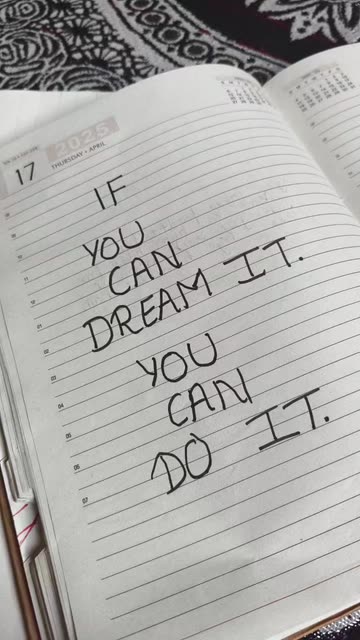 2025
17
THURSDAY • APRIL
IF
YOU
CAN
DREAM IT.
YOU
CAN
DO IT.